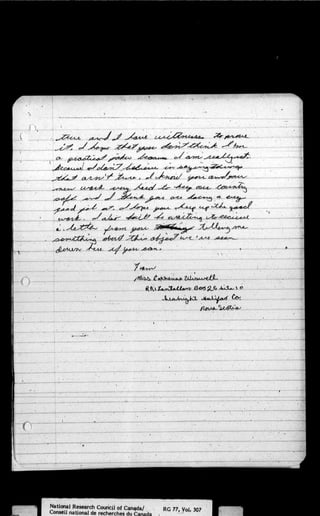 true and I have witnesses to prove
it. I hope that you don't think I am
a practical joker because I am really not.
because I don't believe in saying things
that aren't true. I know you and your
men work very hard to keep our country
safe and I think you are doing a very
good job at it. I hope you keep up the good
work. I also will be waiting to receive
a letter from you telling me
something about this object we've seen
down here if you can.
From
Miss Catherine
R.R.1 Tantallon Box 26 Site 10
Halifax Co.
Nova Scotia
National Research Council of Canada/
Conseil national de recherches du Canada
RG 77, Vol. 307